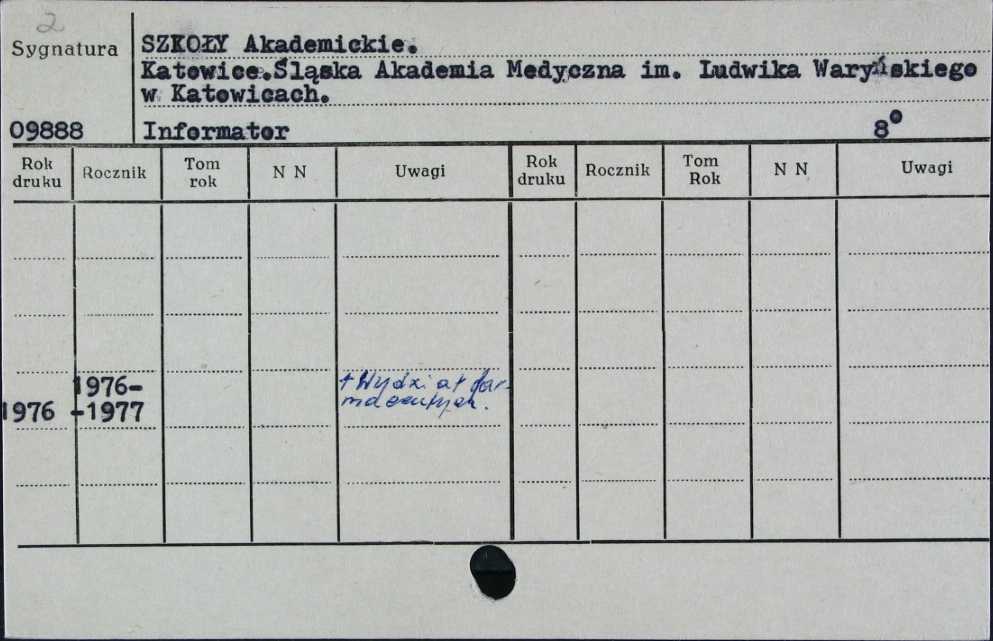 2
Sygnatura
SZKOŁY Akademickie.
Katowice.Śląska Akademia Medyczna im. Ludwika Waryńskiego
w Katowicach.
09888 Informator 8°
Rok druku Rocznik Tom rok N N Uwagi Rok druku Rocznik Tom Rok N N Uwagi
1976- + Wydział far-
1976 -1977